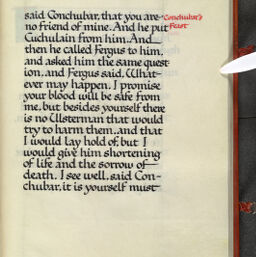 said Conchubar, that you are
no friend of mine. And he put
Cuchulain from him. And
then he called Fergus to him,
and asked him the same quest
ion, and Fergus said, What
ever may happen, I promise
your blood will be safe from
me, but besides yourself there
is no Ulsterman that would
try to harm them, and that
I would lay hold of, but I
would give him shortening
of life and the sorrow of
death. I see well, said Con-
chubar, it is yourself must
Conchubar's
Feast